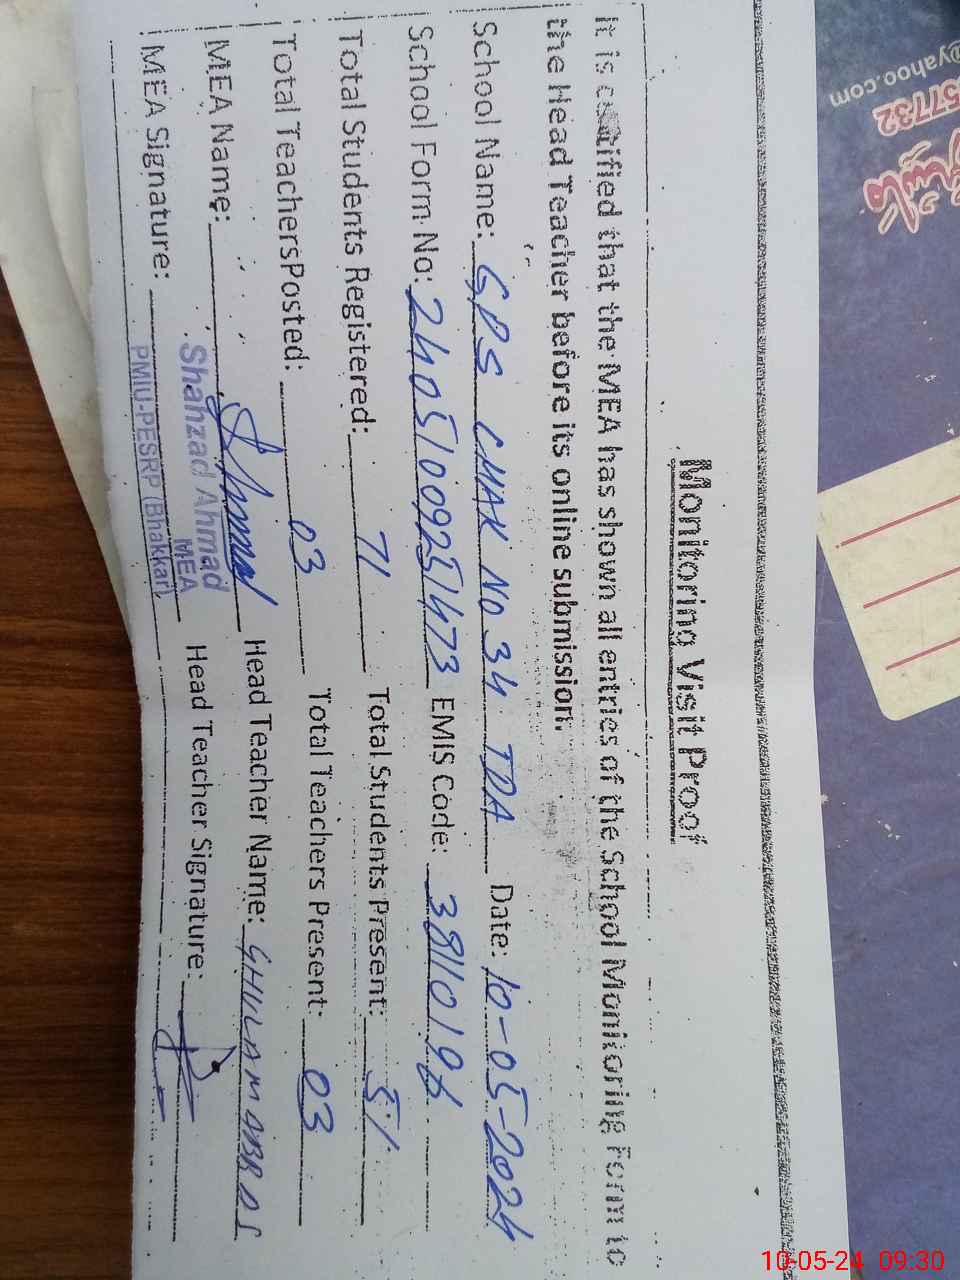 Monitoring Visit Proof
It is certified that the MEA has shown all entries of the School Monitoring Form to
the Head Teacher before its online submission.
School Name: GPS CHAK NO 34 TDA Date: 10-05-2024
School Form No: 24051009251473 EMIS Code: 38110196
Total Students Registered: 71 Total Students Present: 51
Total TeachersPosted: 03 Total Teachers Present: 03
MEA Name: Head Teacher Name: GHULAM ABBAS
Shahzad Ahmad
MEA
MEA Signature: Head Teacher Signature:
PMIU-PESRP (Bhakkar)
@yahoo.com
57732
10-05-24 09:30